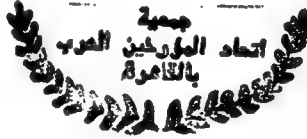 جمعية
اتحاد المؤرخين العرب
بالقاهرة